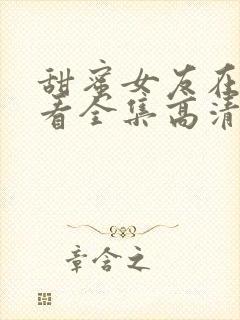 甜蜜女友在
看全集高清
章含之